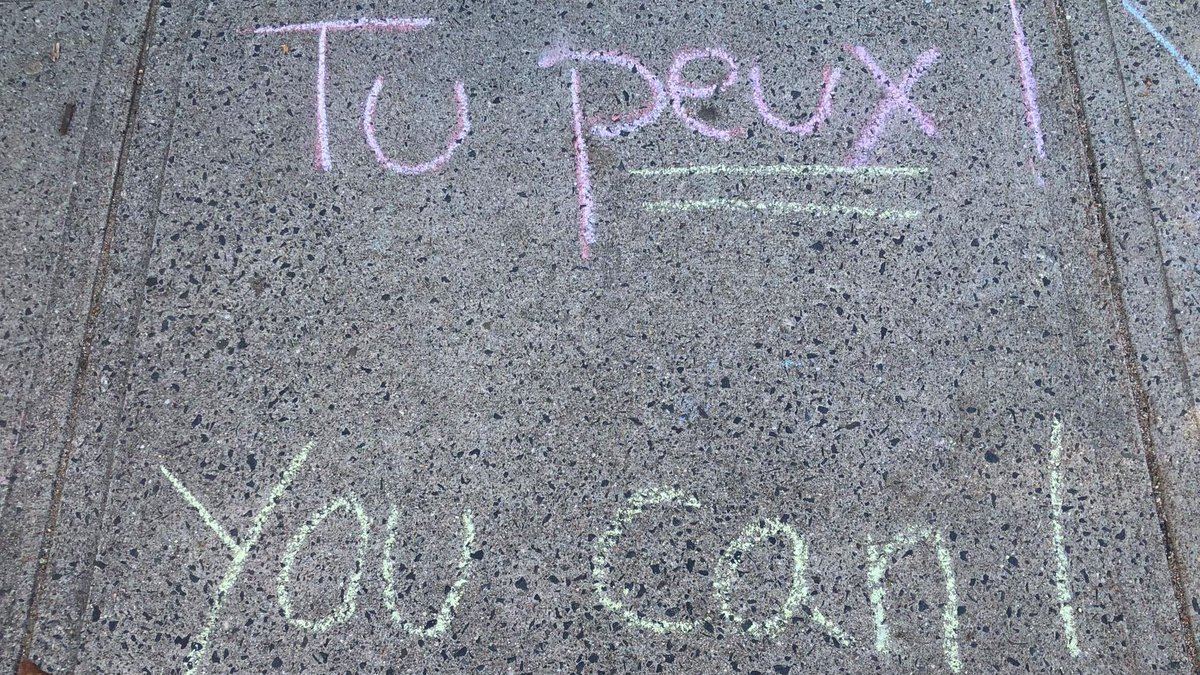 Tu peux!
You can!